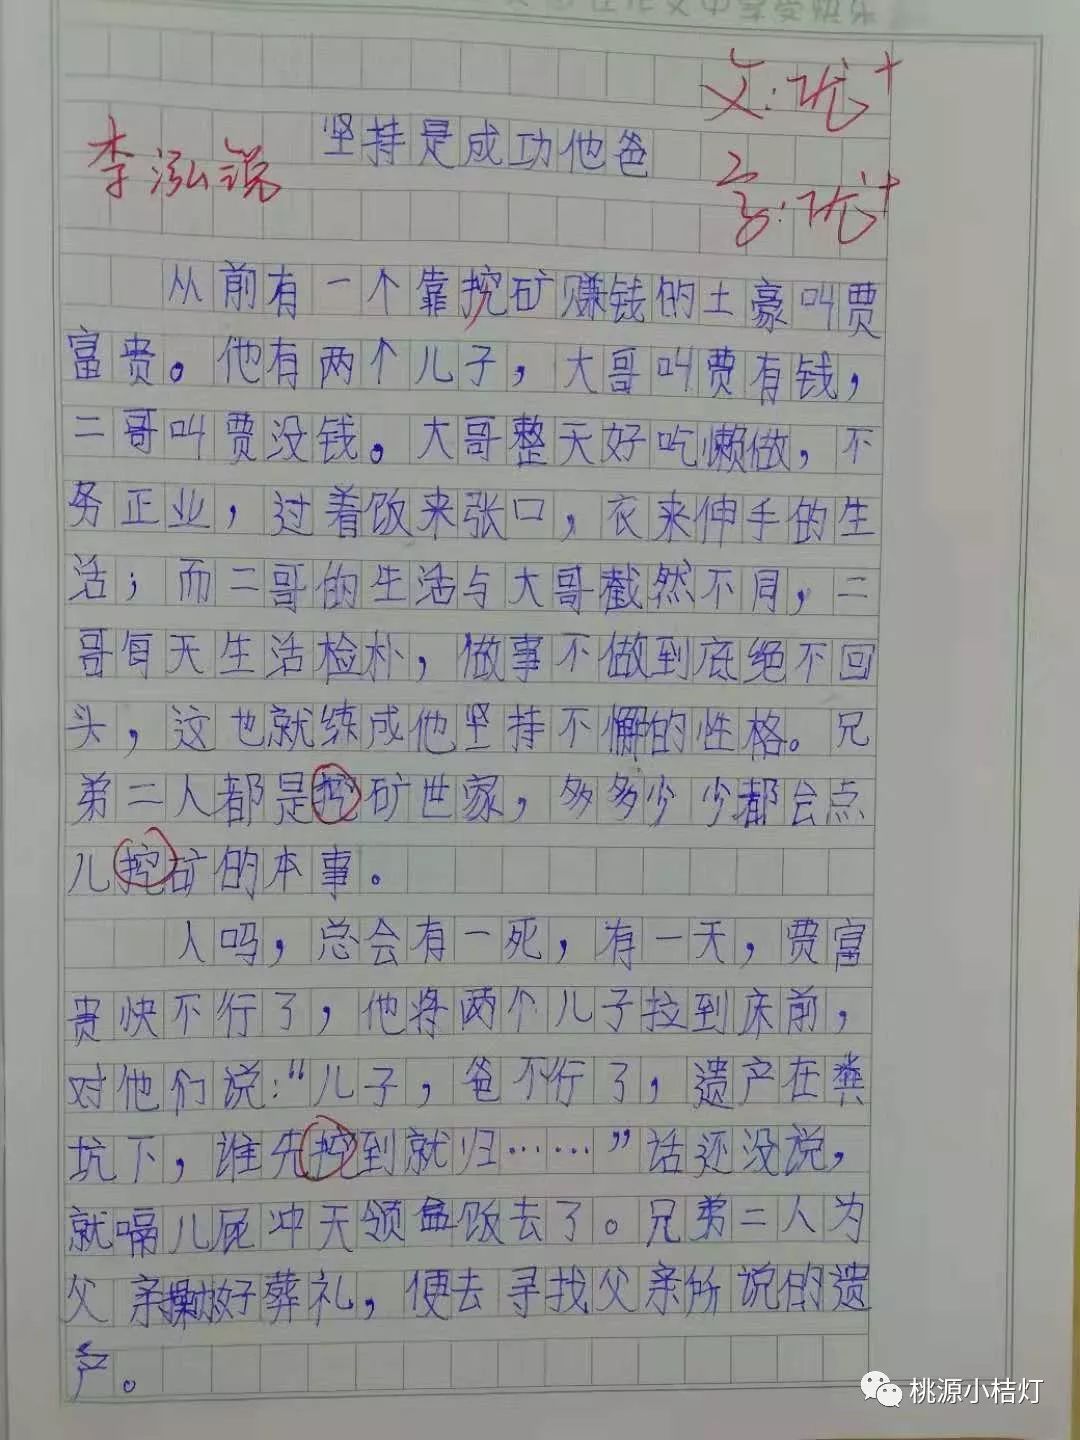 文:优+
坚持是成功他爸
李泓锐
字:优+
从前有一个靠挖矿赚钱的土豪叫贾
富贵。他有两个儿子，大哥叫贾有钱，
二哥叫贾没钱。大哥整天好吃懒做，不
务正业，过着饭来张口，衣来伸手的生
活；而二哥的生活与大哥截然不同，二
哥每天生活检朴，做事不做到底绝不回
头，这也就练成他坚持不懈的性格。兄
弟二人都是挖矿世家，多多少少都会点
儿挖矿的本事。
人吗，总会有一死，有一天，贾富
贵快不行了，他将两个儿子拉到床前，
对他们说:“儿子，爸不行了，遗产在粪
坑下，谁先挖到就归……”话还没说，
就嗝儿屁冲天领盒饭去了。兄弟二人为
父亲操办好葬礼，便去寻找父亲所说的遗
产。
桃源小桔灯